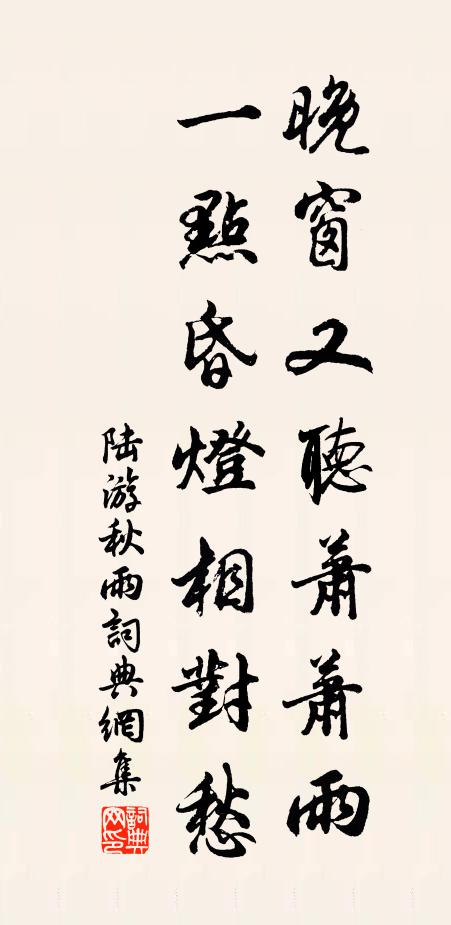 晚窗又聽蕭蕭雨
一點昏燈相對愁
陆游秋雨詞典網集
詞典網印